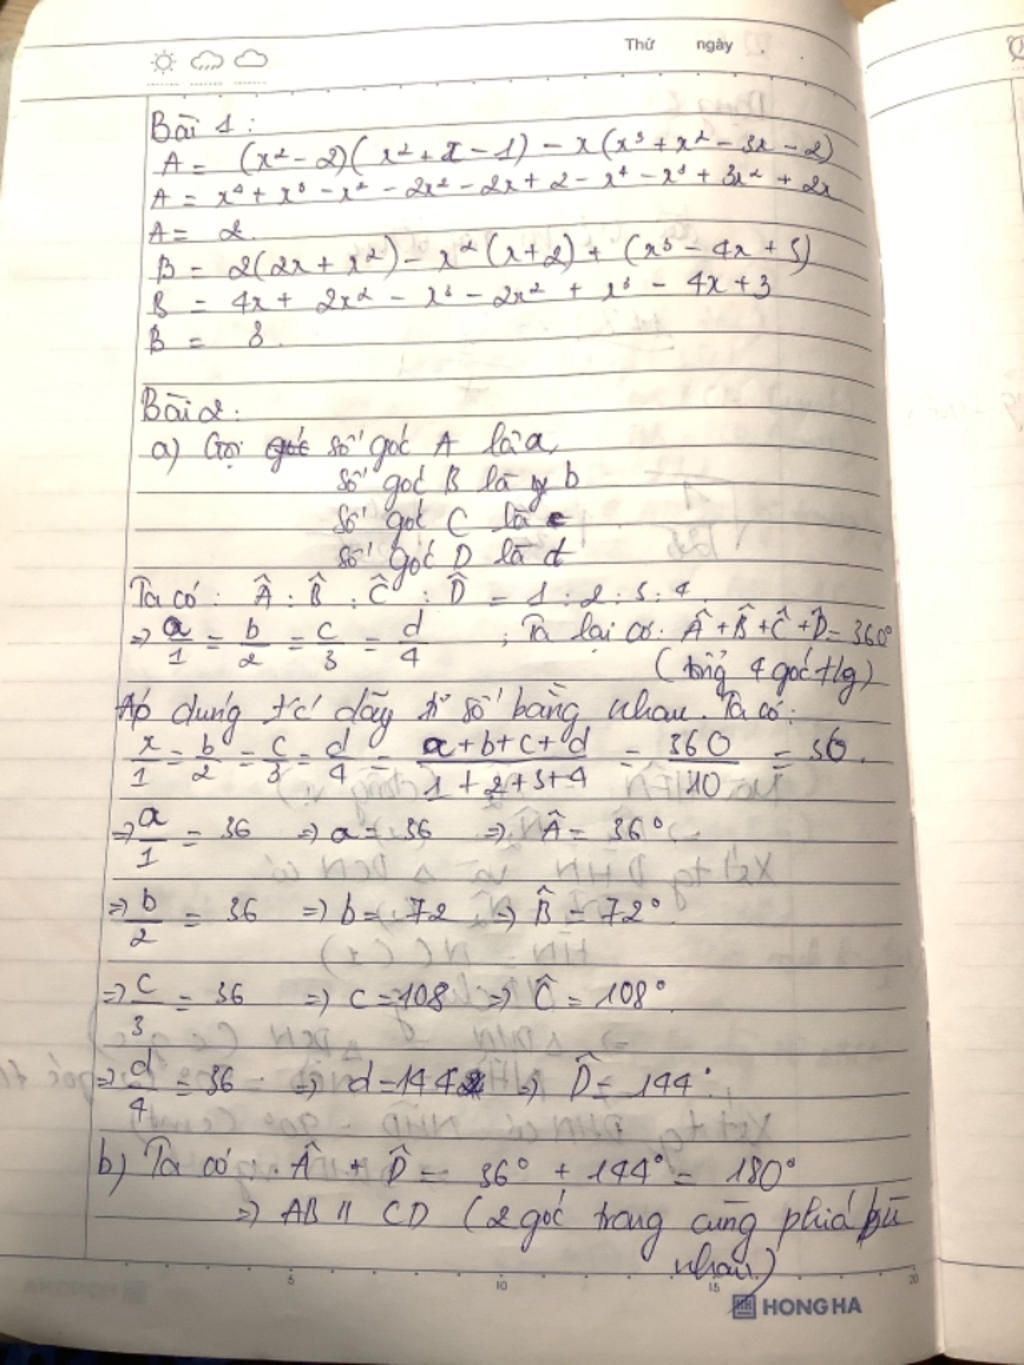 Thứ ngày
Bài 1:
A = (x² - 2)(x² + x - 1) - x(x³ + x² - 3x - 2)
A = x⁴ + x³ - x² - 2x² - 2x + 2 - x⁴ - x³ + 3x² + 2x
A = 2.
B = 2(2x + x²) - x²(x + 2) + (x³ - 4x + 3)
B = 4x + 2x² - x³ - 2x² + x³ - 4x + 3
B = 3.
Bài 2:
a) Gọi số góc A là a,
số góc B là b
số góc C là c
số góc D là d
Ta có: Â : B̂ : Ĉ : D̂ = 1 : 2 : 3 : 4
=> a/1 = b/2 = c/3 = d/4 ; Ta lại có: Â + B̂ + Ĉ + D̂ = 360°
(tổng 4 góc tg)
Áp dụng t/c dãy tỉ số bằng nhau. Ta có:
x/1 = b/2 = c/3 = d/4 = a+b+c+d/1+2+3+4 = 360/10 = 36.
=> a/1 = 36 => a = 36 => Â = 36°
=> b/2 = 36 => b = 72 => B̂ = 72°
=> c/3 = 36 => c = 108 => Ĉ = 108°
=> d/4 = 36 => d = 144 => D̂ = 144°
b) Ta có: Â + D̂ = 36° + 144° = 180°
=> AB // CD (2 góc trong cùng phía bù
nhau)
5 10 15 20
HH HONG HA